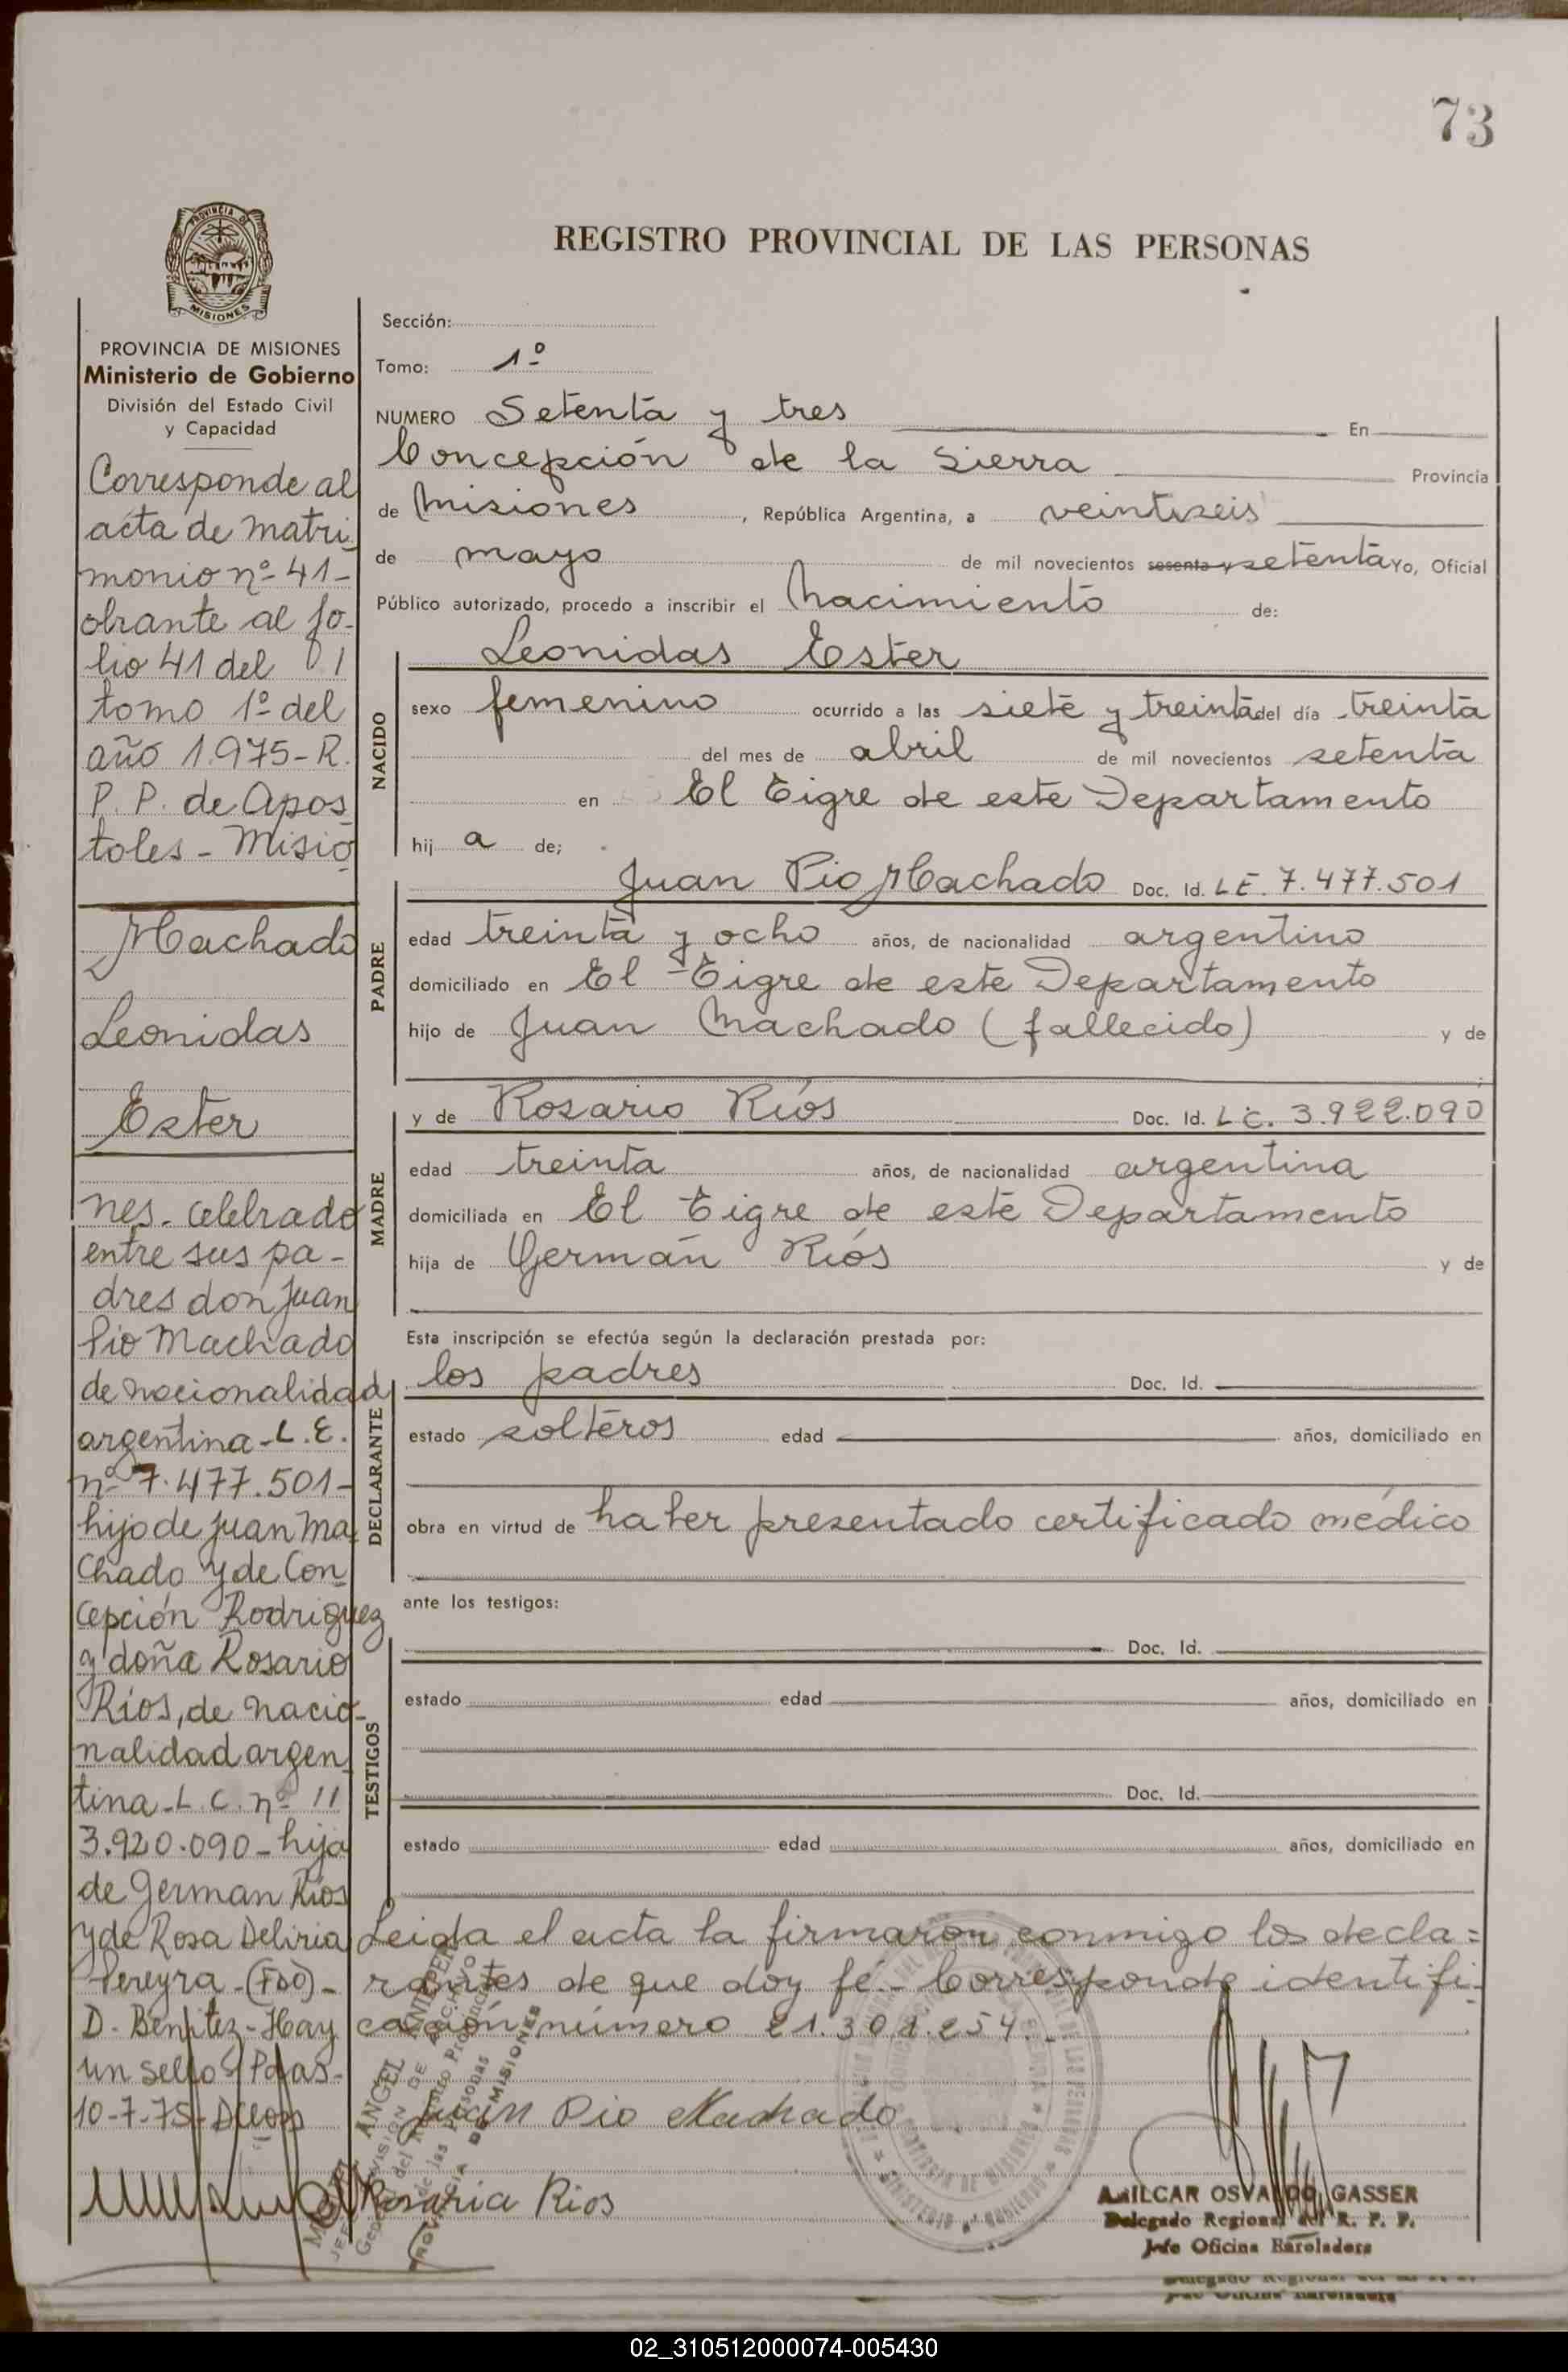 73
PROVINCIA DE
MISIONES
REGISTRO PROVINCIAL DE LAS PERSONAS
PROVINCIA DE MISIONES
Ministerio de Gobierno
División del Estado Civil
y Capacidad
Corresponde al
acta de matri
monio nº 41-
obrante al fo-
lio 41 del
tomo 1º del
año 1.975- R.
P. P. de Apos
toles - Misio
Machado
Leonidas
Ester
nes. celebrado
entre sus pa-
dres don Juan
Pio Machado
de nacionalidad
argentina - L. E.
nº 7.477.501-
hijo de Juan Ma
chado y de Con
cepción Rodriguez
y doña Rosario
Ríos, de nacio-
nalidad argen
tina - L. C. nº "
3.920.090 - hija
de German Ríos
y de Rosa Deliria
Pereyra - (FDO) -
D. Benitez - Hay
un sello - Pdas-
10-7-75-
Sección:
Tomo: 1º
NUMERO Setenta y tres En
Concepción de la Sierra Provincia
de Misiones, República Argentina, a veintiseis
de mayo de mil novecientos sesenta y setenta Yo, Oficial
Público autorizado, procedo a inscribir el Nacimiento de:
NACIDO
Leonidas Ester
sexo femenino ocurrido a las siete y treinta del día treinta
del mes de abril de mil novecientos setenta
en El Tigre de este Departamento
hij a de;
PADRE
Juan Pio Machado Doc. Id. L E. 7.477.501
edad treinta y ocho años, de nacionalidad argentino
domiciliado en El Tigre de este Departamento
hijo de Juan Machado (fallecido) y de
MADRE
y de Rosario Ríos Doc. Id. L C. 3.922.090
edad treinta años, de nacionalidad argentina
domiciliada en El Tigre de este Departamento
hija de Germán Ríos y de
DECLARANTE
Esta inscripción se efectúa según la declaración prestada por:
los padres Doc. Id.
estado solteros edad años, domiciliado en
obra en virtud de haber presentado certificado médico
ante los testigos:
TESTIGOS
Doc. Id.
estado edad años, domiciliado en
Doc. Id.
estado edad años, domiciliado en
Leida el acta la firmaron conmigo los decla=
rantes de que doy fé.- Corresponde identifi-
cación número 21.301.254.-
Juan Pio Machado
Rosaria Rios
AMILCAR OSVALDO GASSER
Delegado Regional del R. P. P.
Jefe Oficina Enroladora
02_310512000074-005430